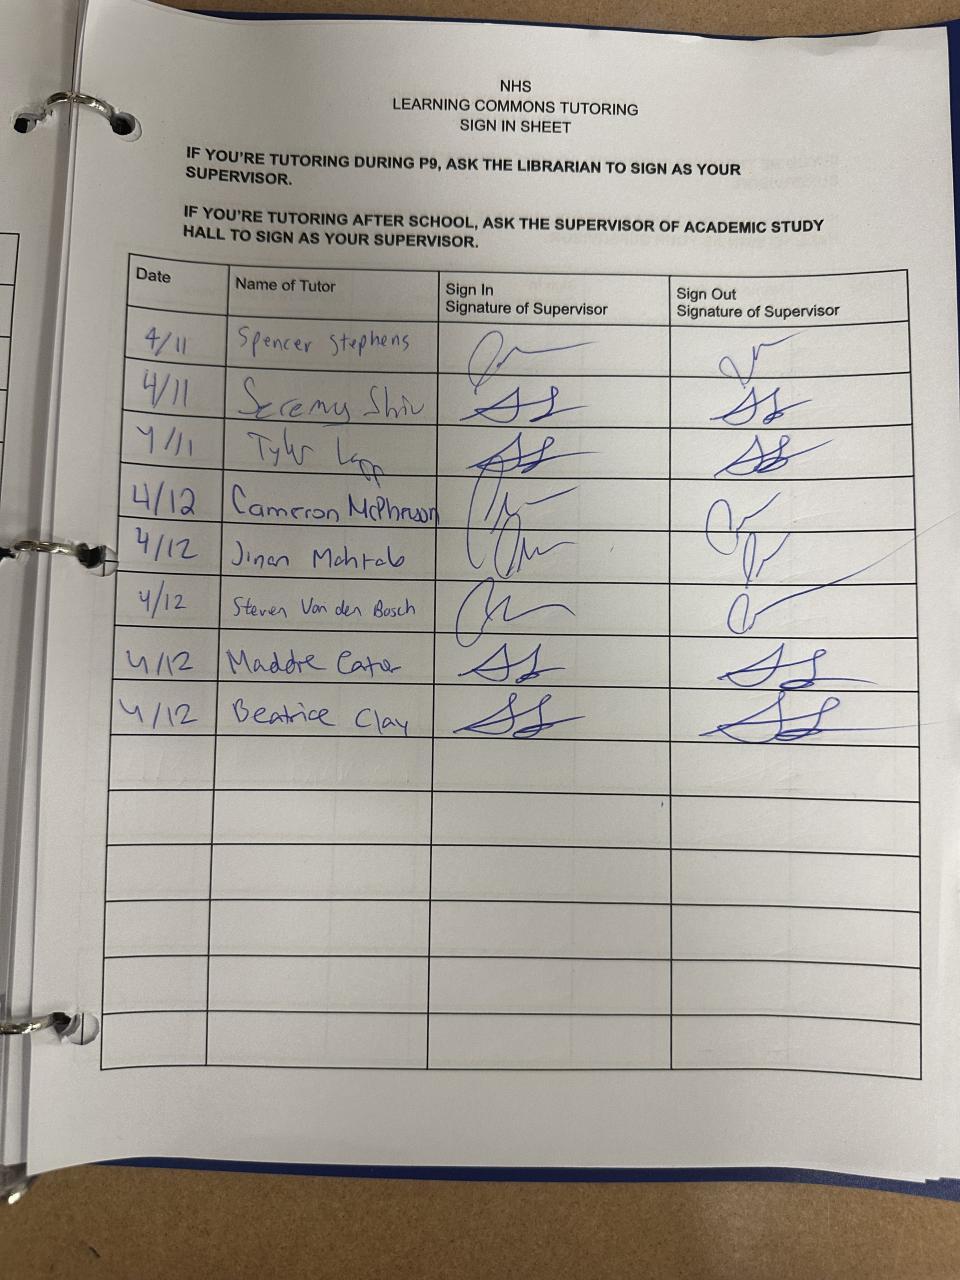 NHS
LEARNING COMMONS TUTORING
SIGN IN SHEET
IF YOU'RE TUTORING DURING P9, ASK THE LIBRARIAN TO SIGN AS YOUR
SUPERVISOR.
IF YOU'RE TUTORING AFTER SCHOOL, ASK THE SUPERVISOR OF ACADEMIC STUDY
HALL TO SIGN AS YOUR SUPERVISOR.
Date Name of Tutor Sign In Signature of Supervisor Sign Out Signature of Supervisor
4/11 Spencer Stephens
4/11 Jeremy Shiv
4/11 Tyler Lapp
4/12 Cameron McPherson
4/12 Jinan Mahtab
4/12 Steven Van den Bosch
4/12 Maddie
4/12 Beatrice Clay